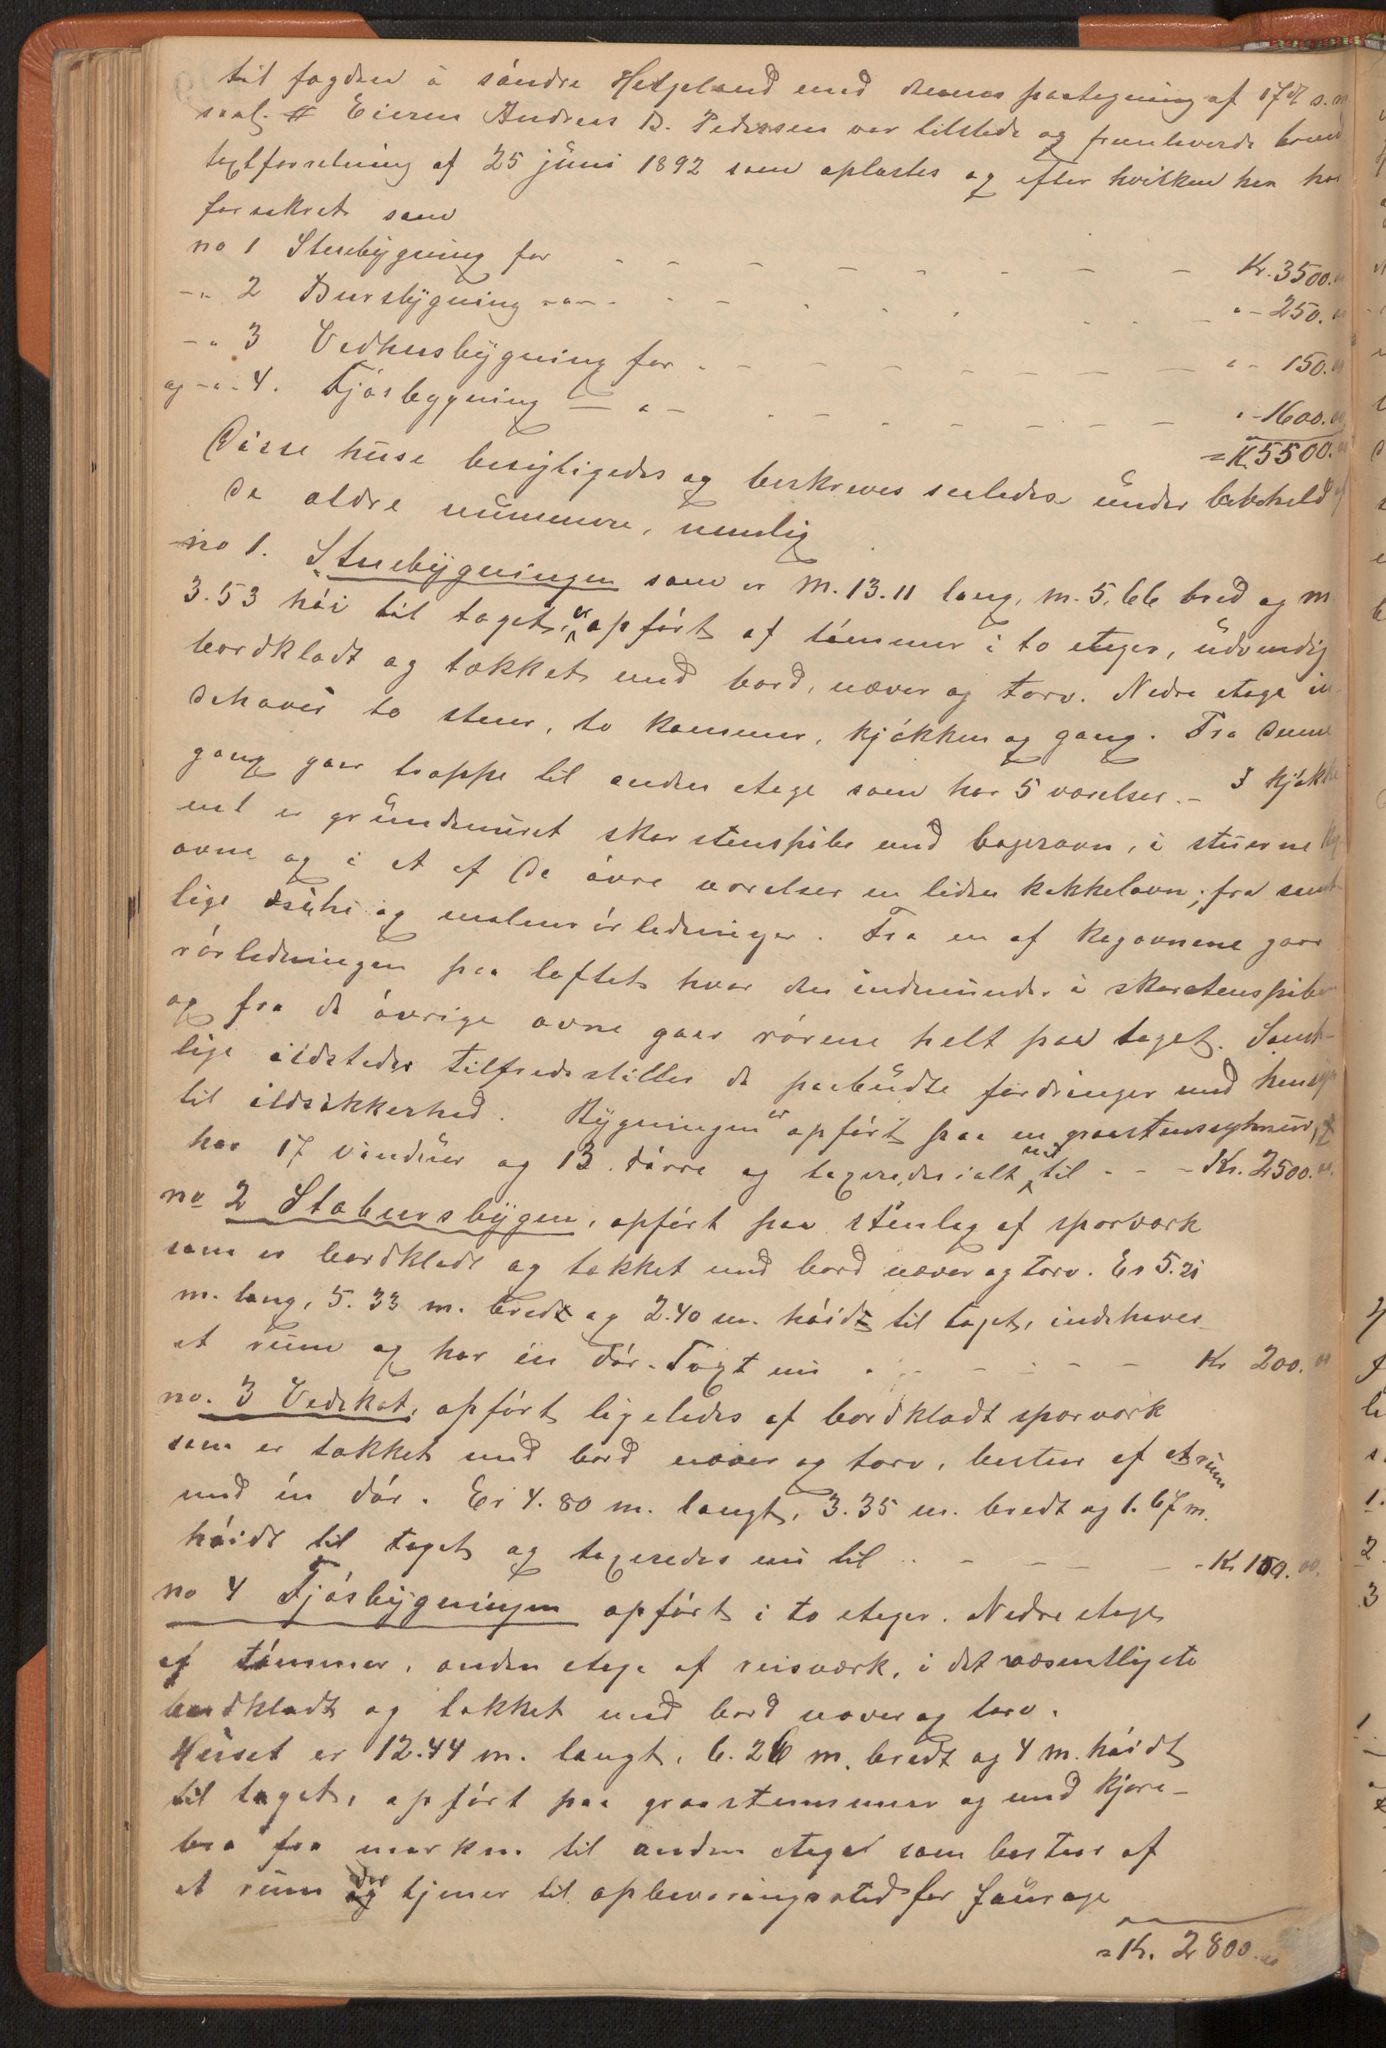 til fogden i søndre Helgeland med dennes paategning af 17de s.m.
saal. # Eieren Andreas B. Pedersen var tilstede og fremleverede brand
taxtforretning af 25 juni 1892 som oplæstes og efter hvilken han har
forsikret som
no 1 Stuebygning for - - - - - - - - Kr. 3500.00
-"- 2 Bursbygning -"- - - - - - "- 250.00
-"- 3 Vedhusbygning for - - - - - - - - "- 150.00
og -"- 4. Fjøsbygning -"- - - - - - - "- 1600.00
= K. 5500.00
Disse huse besigtigedes og beskreves saaledes under bibehold af
de ældre nummere, nemlig
no 1. Stuebygningen som er M. 13.11 lang, m. 5.66 bred og m.
3.53 høi til taget, er opført af tømmer i to etager, udvendig
bordklædt og tækket med bord, næver og torv. Nedre etage in-
dehaver to stuer, to kammer, kjøkken og gang. Fra denne
gang gaar trappe til anden etage som har 5 værelser. - I kjøkke
net er grundmuret skorstenspibe med bagerovn, i stuerne kog
ovne og i et af de øvre værelser en liden kakkelovn; fra samt-
lige og rørledninger. Fra en af kogovnene gaar
rørledningen paa loftet hvor den indmunder i skorstenspiben
og fra de øvrige ovne gaar rørene helt paa taget. Samt-
lige ildsteder tilfredsstiller de paabudte fordringer med hensyn
til ildsikkerhed. Bygningen er opført paa en graastensgrundmur,
har 17 vinduer og 13 dørre og taxeredes ialt nu til - - - Kr. 2500.00.
no 2 Stabursbygen, opført paa stenlag af sporværk
som er bordklædt og tækket med bord næver og torv. Er 5.21
m. lang, 5.33 m. bredt og 2.40 m. høidt til taget, indehaver
et rum og har én dør. Taxt nu - - - - - - Kr 200.00
no. 3 Vedskot, opført ligeledes af bordklædt sporværk
som er tækket med bord næver og torv, bestaar af et rum
med én dør. Er 4.80 m. langt, 3.35 m. bredt og 1.67 m.
høidt til taget og taxeredes nu til - - - - - - Kr 100.00.
no 4 Fjøsbygningen opført i to etager. Nedre etage
af tømmer, anden etage af reisværk, i det væsentligste
bordklædt og tækket med bord næver og torv.
Huset er 12.44 m. langt, 6.26 m. bredt og 4 m. høidt
til taget, opført paa graastensmur og med kjøre-
bro fra marken til anden etage som bestaar af
et rum der tjener til opbevaringssted for fourage
= Kr. 2800.00